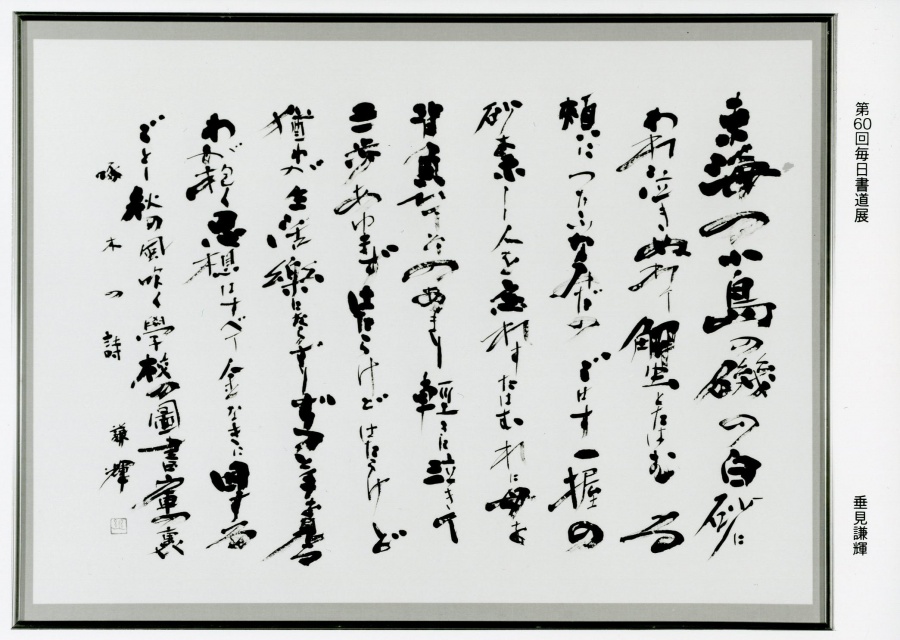 第60回毎日書道展
垂見謙輝
東海の小島の磯の白砂に
われ泣きぬれて蟹とたはむる
頬につたふなみだのごはず一握の
砂を示しし人を忘れずたはむれに母を
背負ひてそのあまり軽きに泣きて
三歩あゆまずはたらけどはたらけど
猶わが生活樂にならざりぢつと手を見る
わが抱く思想はすべて金なきに因する
ごとし秋の風吹く學校の圖書庫の裏
啄木の詩
謙輝